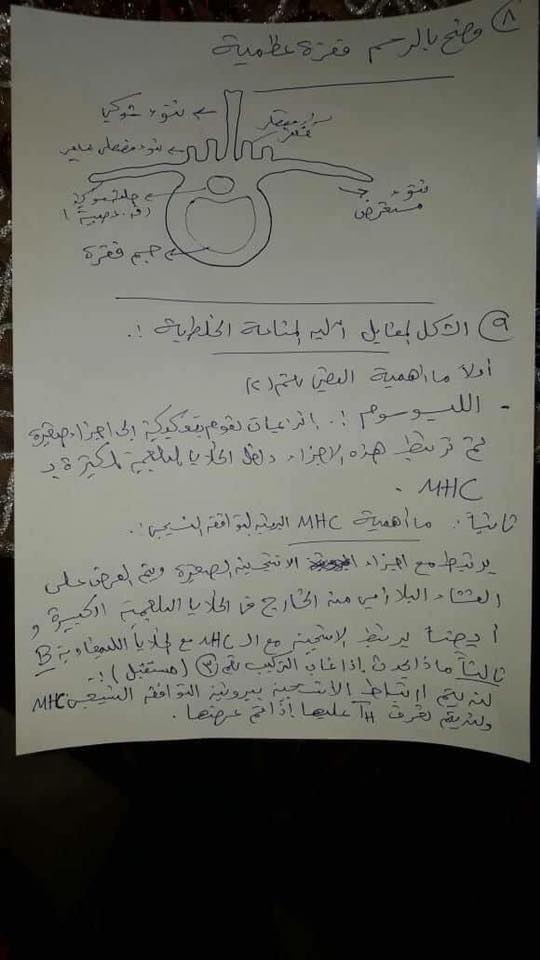 ٨ وضح بالرسم فقرة عظمية
نتوء شوكي
نتوء مفصلي
نتوء
مستعرض
حلقة شوكية
جسم فقرة
٩ الشكل المقابل آلية المناعة الخلطية :.
أولاً ما أهمية العضي رقم (٢)
- الليسوسوم :. انزيمات تقوم بتفكيكية إلى أجزاء صغيرة
ثم ترتبط هذه الاجزاء داخل الخلايا البلعمية الكبيرة بـ
MHC .
ثانياً: ما أهمية MHC البروتين التوافق النسيجي :.
يرتبط مع أجزاء الانتجين الصغيرة ويتم العرض على
الغشاء البلازمي من الخارج في الخلايا البلعمية الكبيرة و
أيضاً يرتبط الانتجين مع الـ MHC مع الخلايا الليمفاوية B
ثالثاً ماذا يحدث إذا غاب التركيب رقم ٣ (مستقبل) :.
لن يتم ارتباط الانتيجين ببروتين التوافق النسيجي MHC
ولن يتم تعرف TH عليها إذا تم عرضها .